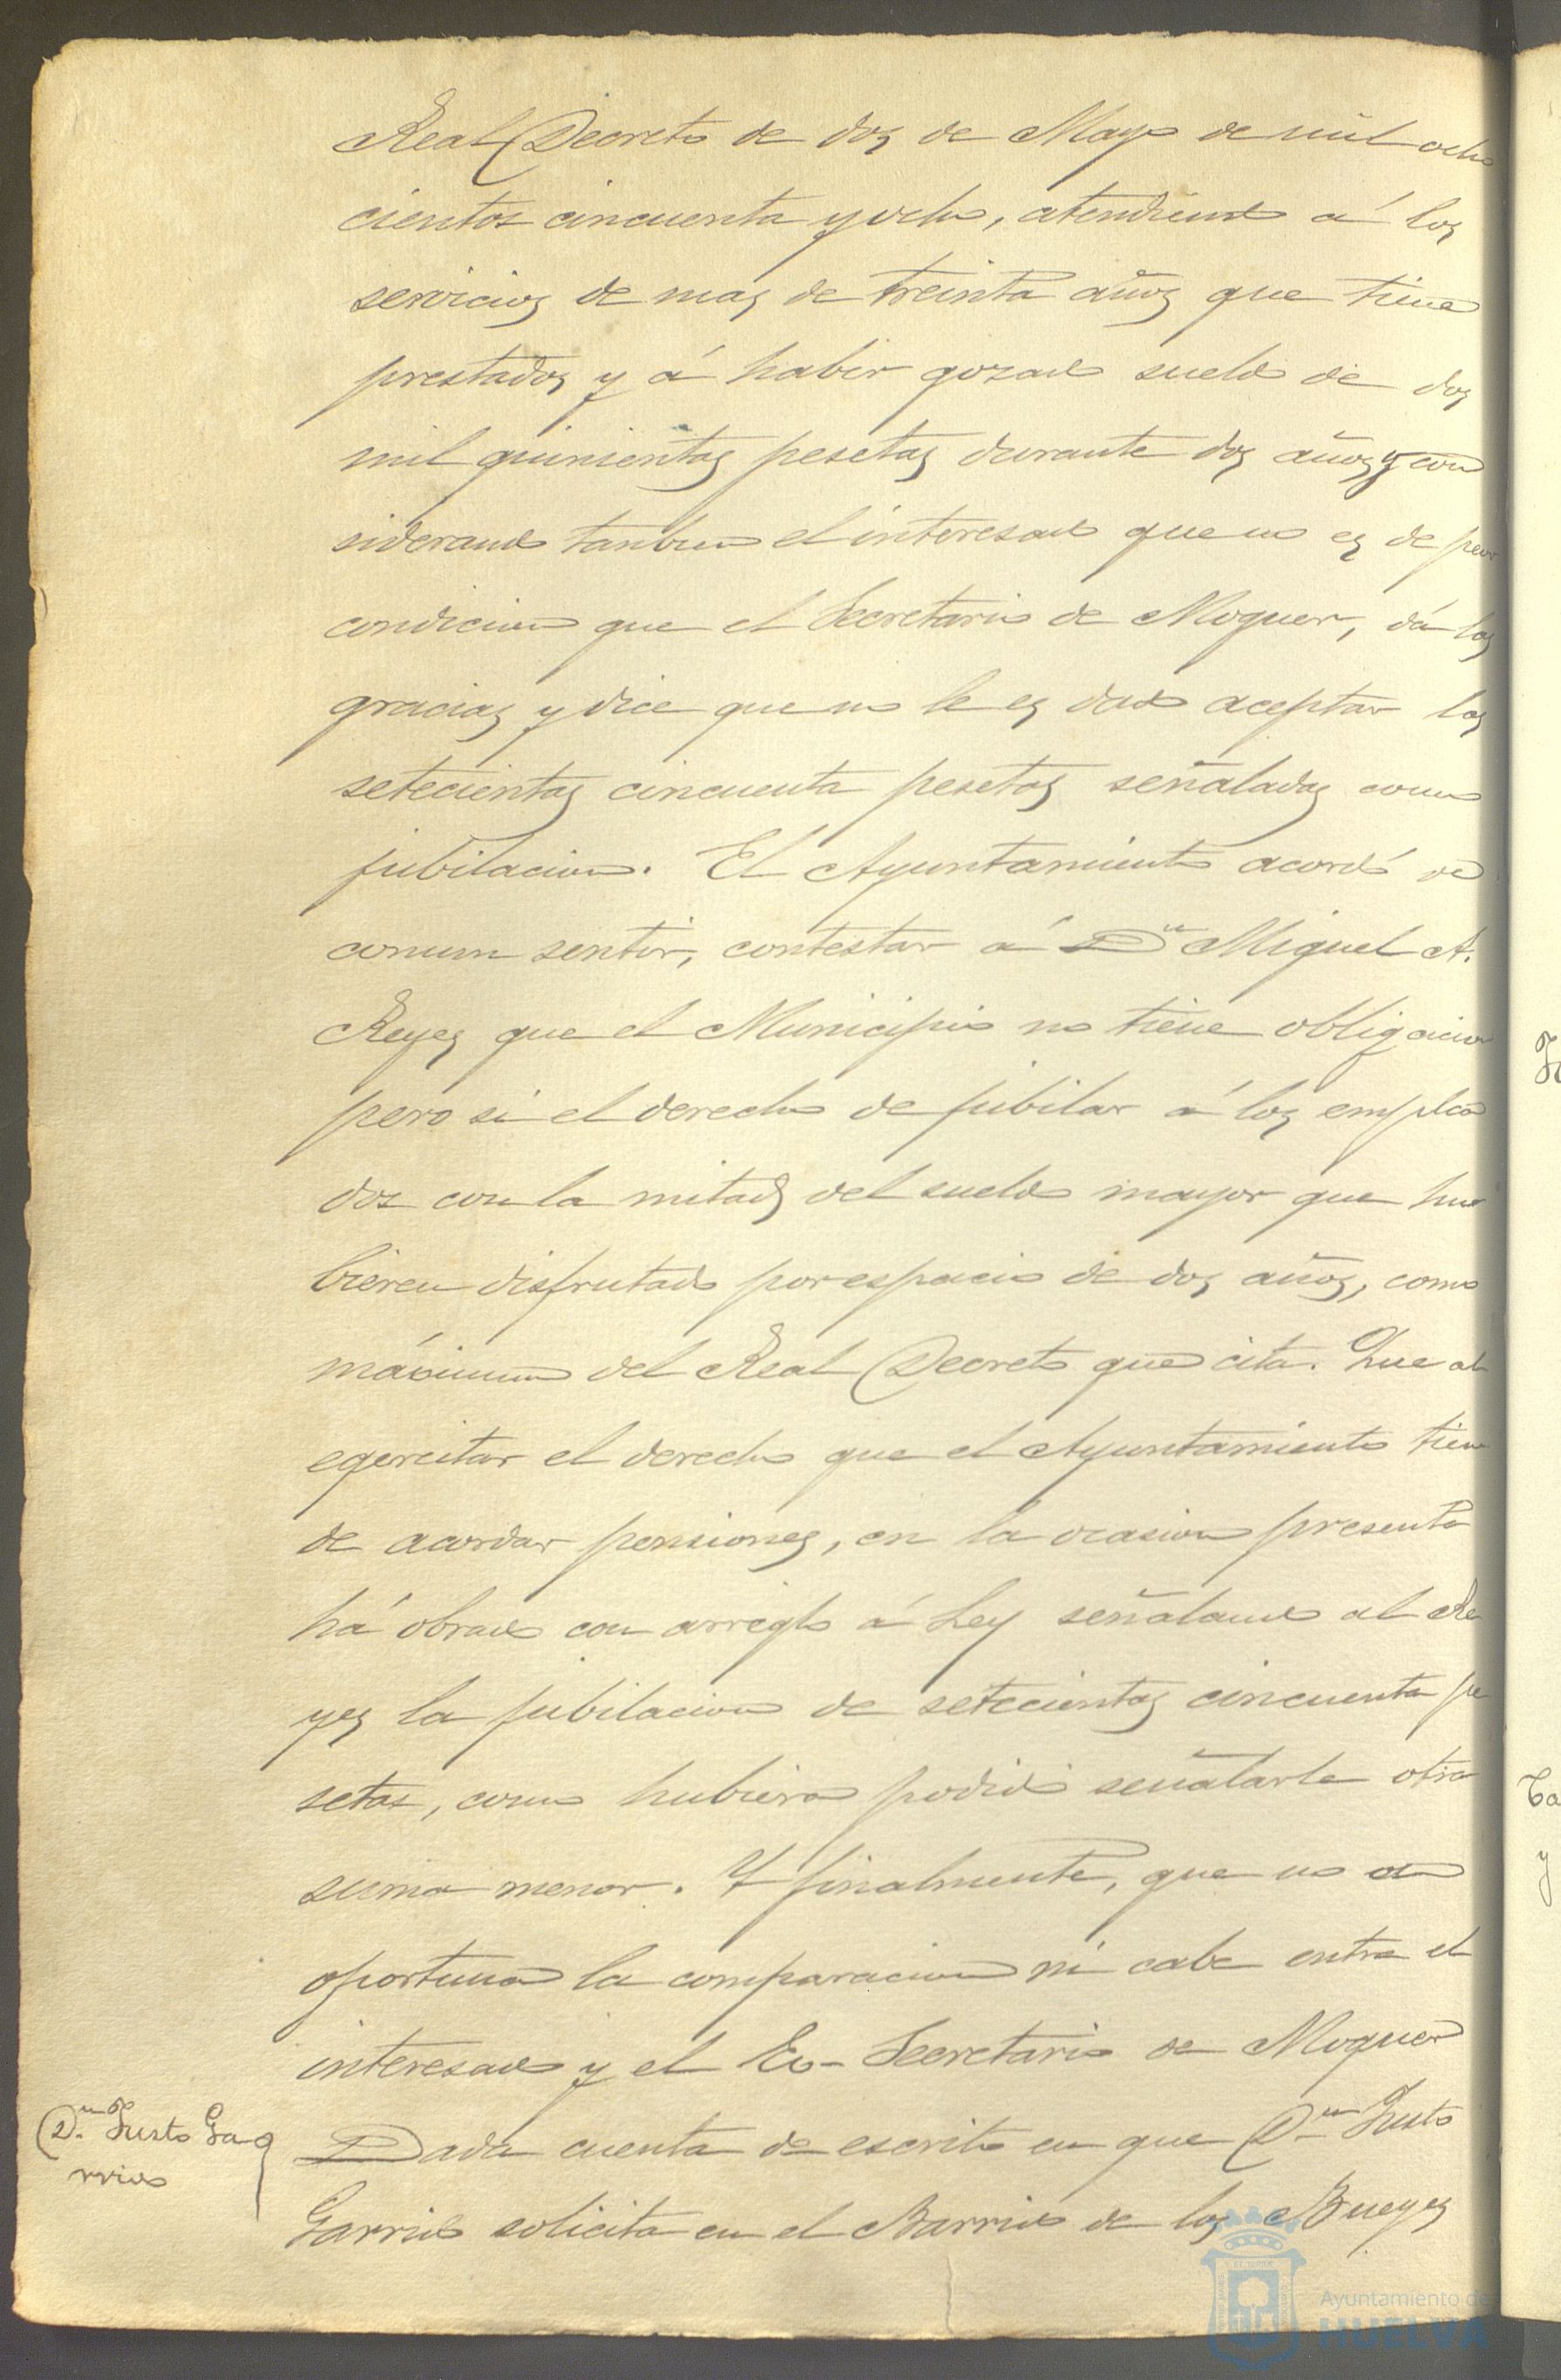 Real Decreto de dos de Mayo de mil ocho
cientos cincuenta y ocho, atendiendo á los
servicios de mas de treinta años que tiene
prestados y á haber gozado sueldo de dos
mil quinientas pesetas durante dos años, y con
siderando tambien el interesado que no es de peor
condicion que el Secretario de Moguer, dá las
gracias y dice que no le es dado aceptar las
setecientas cincuenta pesetas señaladas como
jubilacion. El Ayuntamiento acordó de
comun sentir, contestar á Dn Miguel A.
Reyes que el Municipio no tiene obligacion
pero si el derecho de jubilar á los emplea
dos con la mitad del sueldo mayor que hu
bieren disfrutado por espacio de dos años, como
máximum del Real Decreto que cita. Que al
egercitar el derecho que el Ayuntamiento tiene
de acordar pensiones, en la ocasion presente
há obrado con arreglo á Ley señalando al Re
yes la jubilacion de setecientas cincuenta pe
setas, como hubiera podido señalarle otra
suma menor. Y finalmente, que no es
oportuna la comparacion ni cabe entre el
interesado y el Ex-Secretario de Moguer
Dn Justo Ga
rrido
Dada cuenta de escrito en que Dn Justo
Garrido solicita en el Barrio de los Bueyes
Ayuntamiento de
HUELVA